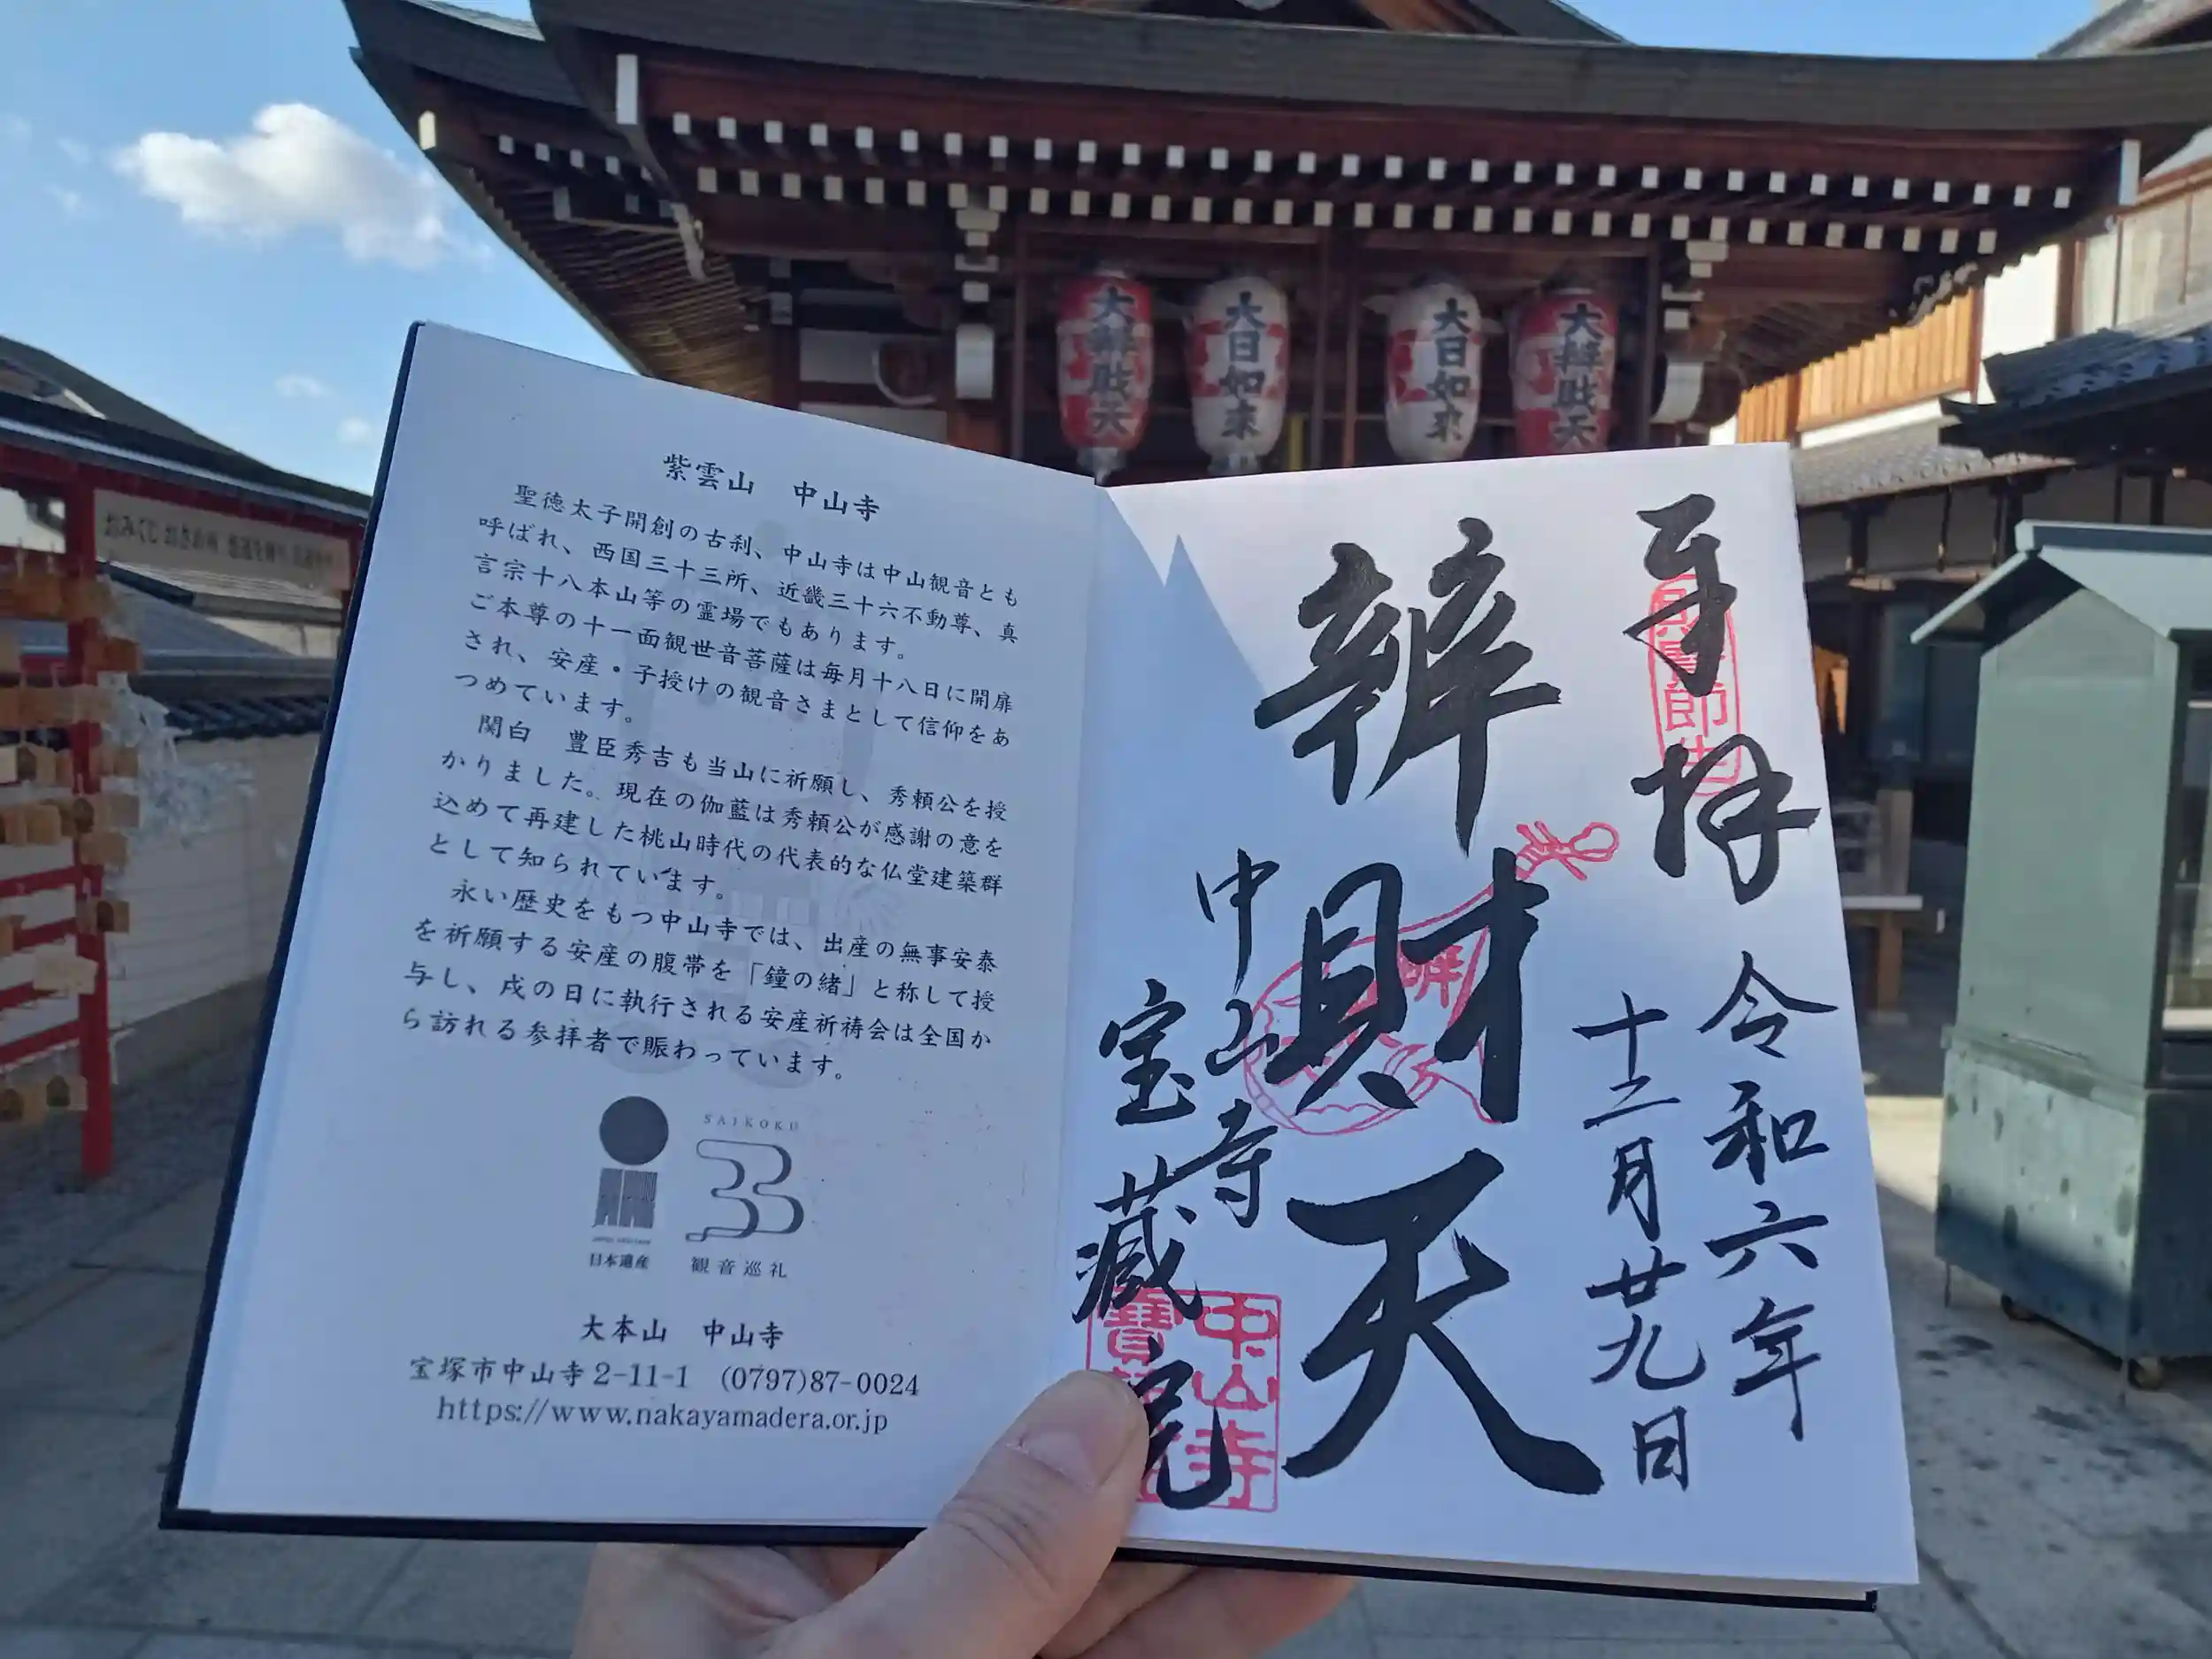 大辨財天
大日如来
大日如来
大辨財天
紫雲山　中山寺
聖徳太子開創の古刹、中山寺は中山観音とも
呼ばれ、西国三十三所、近畿三十六不動尊、真
言宗十八本山等の霊場でもあります。
ご本尊の十一面観世音菩薩は毎月十八日に開扉
され、安産・子授けの観音さまとして信仰をあ
つめています。
関白　豊臣秀吉も当山に祈願し、秀頼公を授
かりました。現在の伽藍は秀頼公が感謝の意を
込めて再建した桃山時代の代表的な仏堂建築群
として知られています。
永い歴史をもつ中山寺では、出産の無事安泰
を祈願する安産の腹帯を「鐘の緒」と称して授
与し、戌の日に執行される安産祈祷会は全国か
ら訪れる参拝者で賑わっています。
SAIKOKU
33
日本遺産
観音巡礼
大本山　中山寺
宝塚市中山寺2-11-1　(0797)87-0024
https://www.nakayamadera.or.jp
奉拝
令和六年
十二月廿九日
辨財天
中山寺
宝蔵院
中山寺